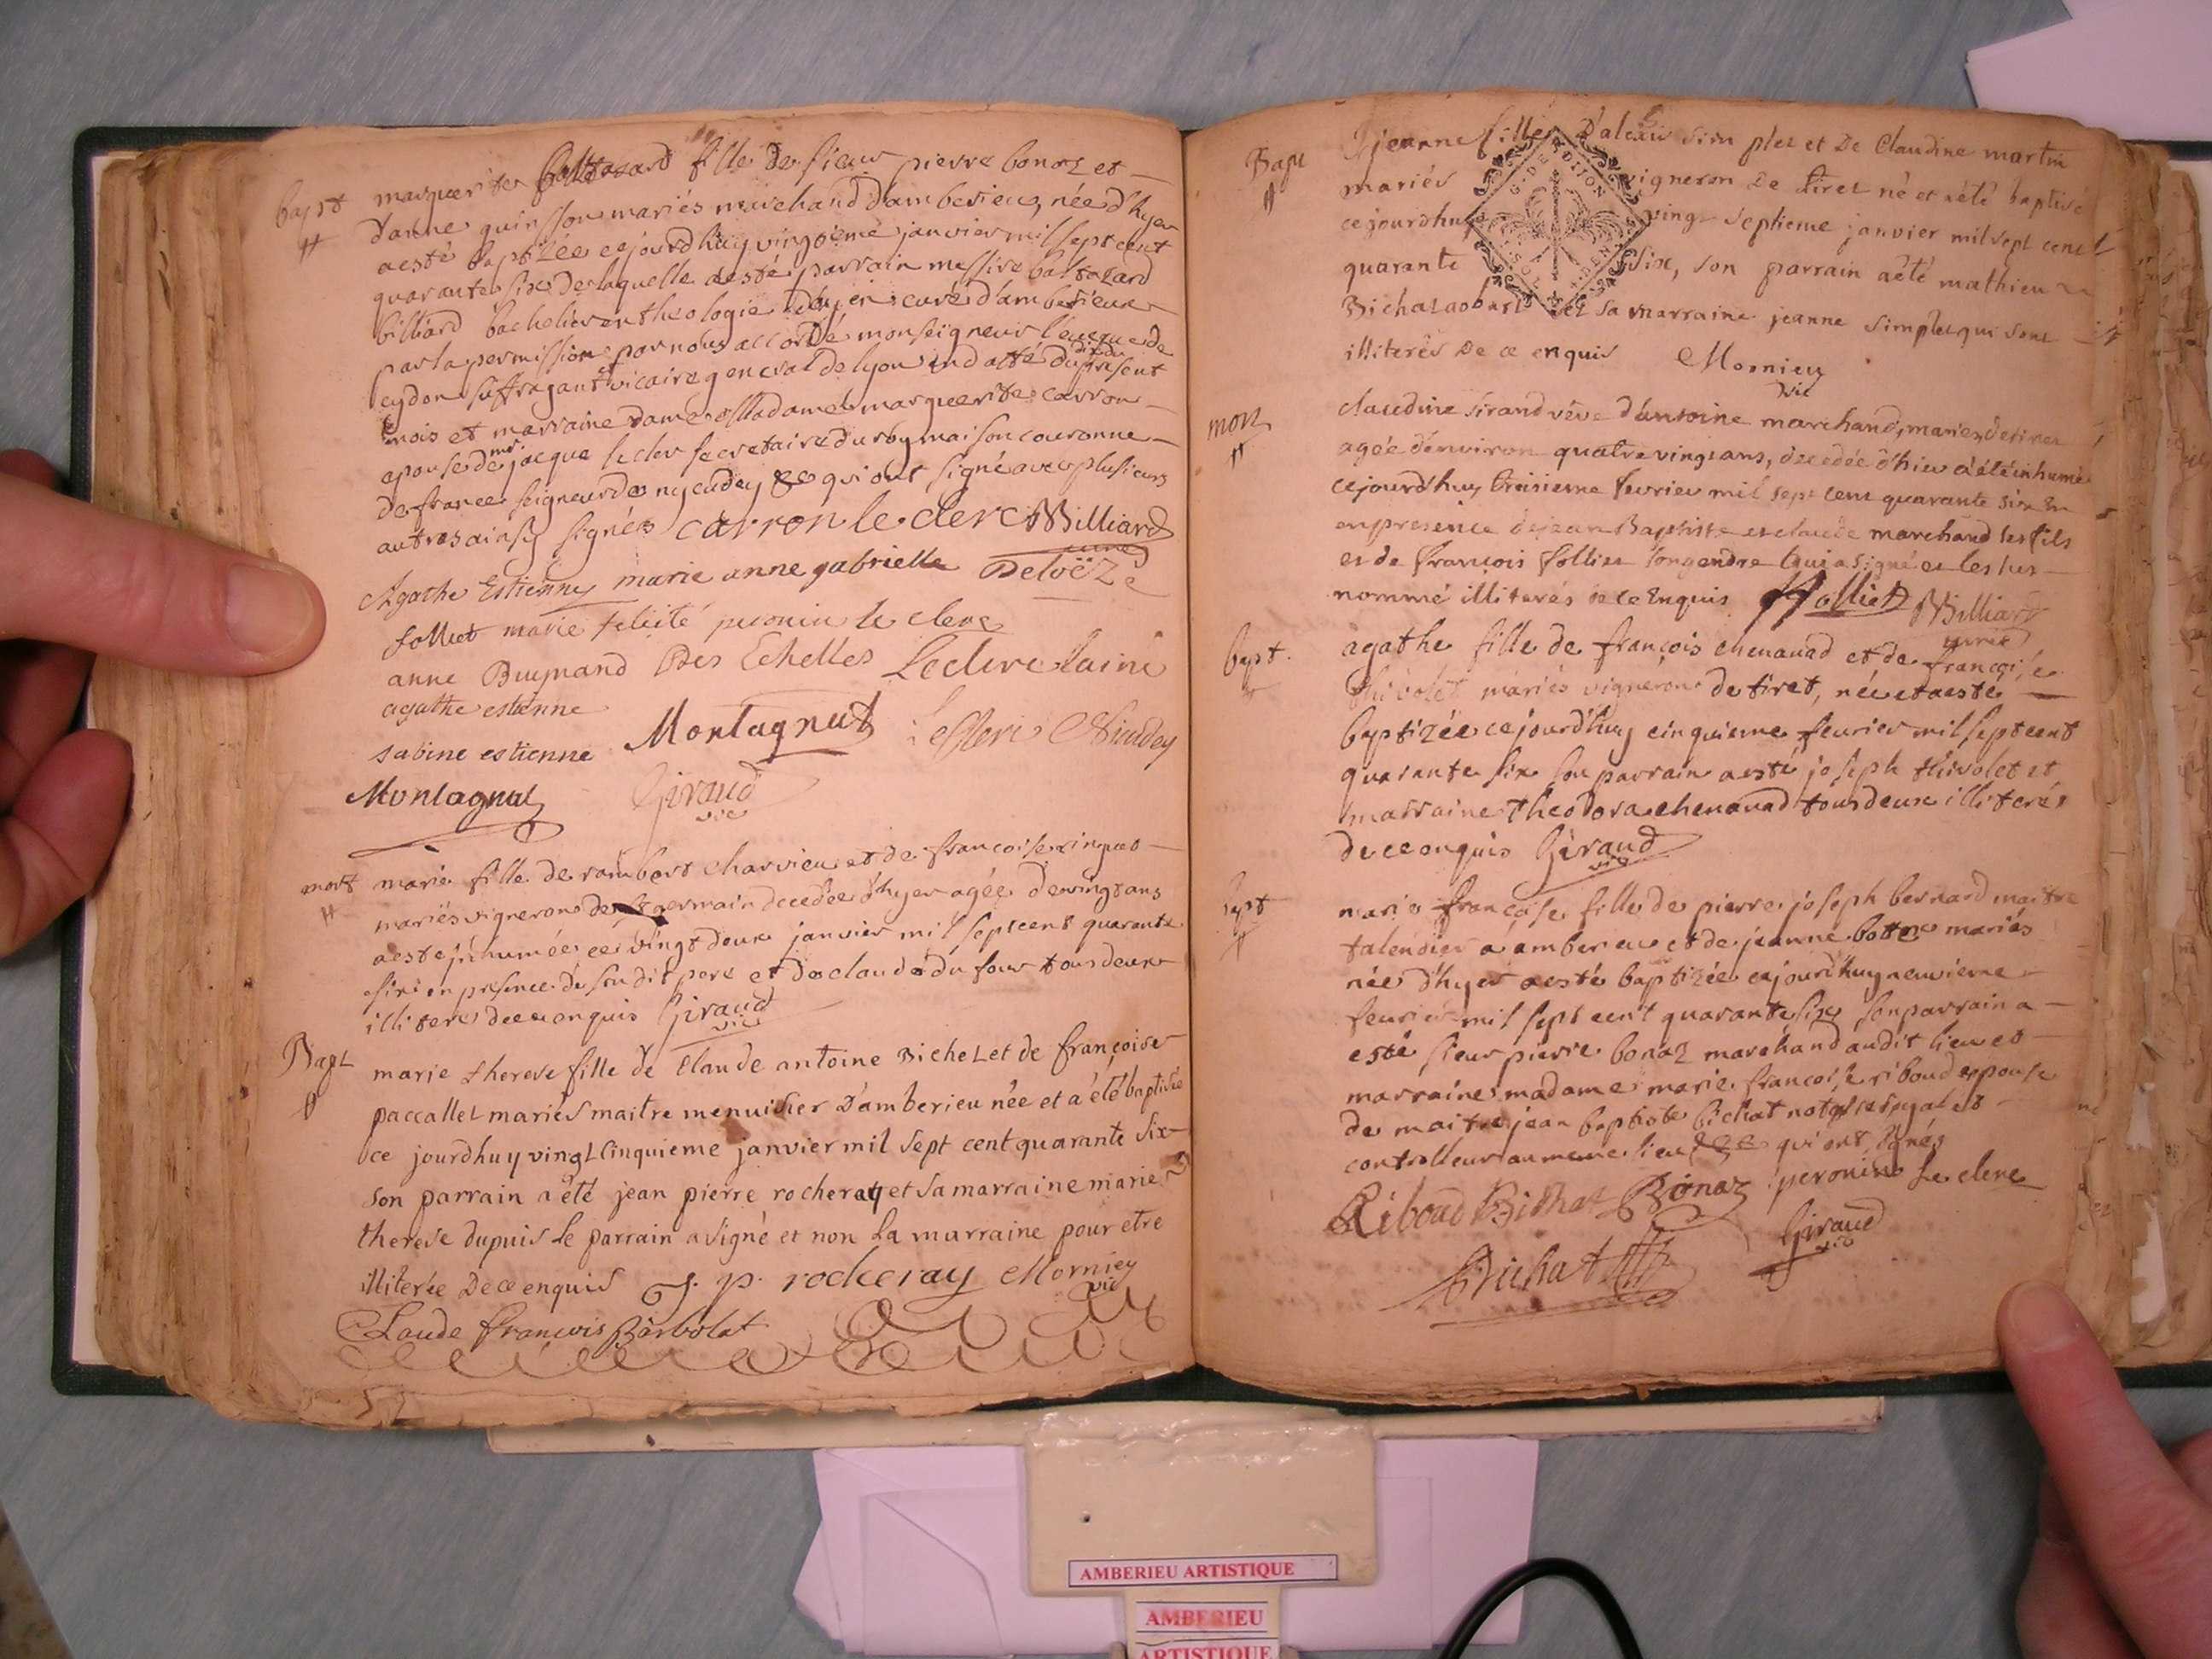 bapt marguerite baltazard fille de sieur pierre bonaz et
danne quinson mariés marchand d'amberieux, née d'hyer
a esté baptizée cejourdhuy vingtieme janvier mil sept cent
quarante six de laquelle a esté parrain messire baltazard
billiard bachelier en theologie curé d'amberieux
par la permission par nous accordé monseigneur l'eveque de
eydon suffragant et vicaire general de lyon du present
mois et marraine dame marguerite carron
epouse de mre jacque leclerc secretaire du roy maison couronne
de france seigneur de qui ont signé avec plusieurs
autres ainsy signés carron le clerc Billiard
curé
Agathe Estienne marie anne gabrielle Deloëze
folliet marie felicité peronin le clerc
anne Buynand Des Echelles Leclerc lainé
agathe estienne
sabine estienne Montagnat
Montagnat Giraud
vic
mort marie fille de rambert charvieu et de francoise
mariés vigneron de st germain decedée d'hyer agée de vingt ans
a esté inhumée ce vingt deux janvier mil sept cent quarante
six en presence du son dit pere et de claude du four tous deux
illiterés de ce enquis Giraud
vic
Bapt marie therese fille de Claude antoine Bichet et de françoise
paccallet mariés maitre menuisier D'amberieu née et a été baptisée
ce jourdhuy vingt Cinquieme janvier mil sept cent quarante six
son parrain a été jean pierre rocheray et sa marraine marie
therese dupuis le parrain a signé et non la marraine pour etre
illiterée De ce enquis J. p. rocheray Morniey
vic
Claude françois Barbolat
Bapt jeanne fille D'alexis simplet et De Claudine martin
mariés vigneron de tiret né et a été baptisé
cejourdhuy vingt septieme janvier mil sept cent
quarante six, son parrain a été mathieu
et sa marraine jeanne simplet qui sont
illiterés De ce enquis Morniey
vic
G. DE DIJON
mort claudine sirand veve d'antoine marchand,
agée denviron quatre vingt ans, decedée d'hier a été inhumé
cejourd'huy troisieme fevrier mil sept cent quarante six
en presence de jean Baptiste et claude marchand ses fils
et de françois folliet son gendre qui a signé et les sus
nommé illiterés de ce Enquis folliet Billiard
curé
bapt. agathe fille de françois chenavad et de françoise
thivolet mariés vigneron de tiret, née et a esté
baptizée cejourd'huy cinquieme feurier mil sept cent
quarante six son parrain a esté joseph thivolet et
marraine theodora chenavad tous deux illiterés
de ce enquis Giraud
vic
bapt marie françoise fille de pierre joseph bernard maitre
a amberieu et de jeanne mariés
née d'hyer a esté baptizée cejourd'huy neuvieme
feurier mil sept cent quarante six son parrain a
esté sieur pierre bonaz marchand audit lieu et
marraine madame marie francoise riboud epouse
de maitre jean baptiste bichat notre royal et
controlleur au meme lieu qui ont signés
Riboud Bichat Bonaz peronin Le clerc
Bichat Giraud
vic
AMBERIEU ARTISTIQUE
AMBERIEU
ARTISTIQUE